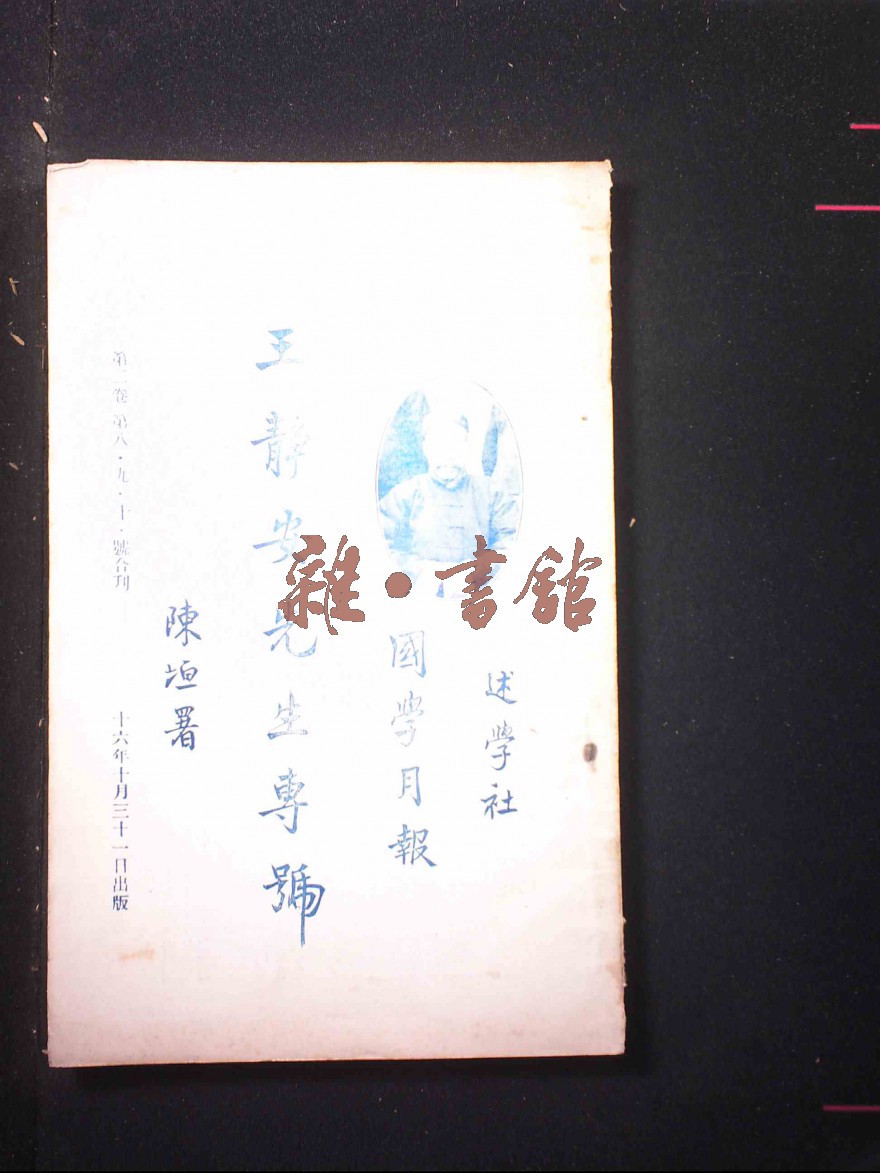 述學社
國學月報
王靜安先生專號
陳垣署
第二卷第八·九·十·號合刊
十六年十月三十一日出版
雜·書館